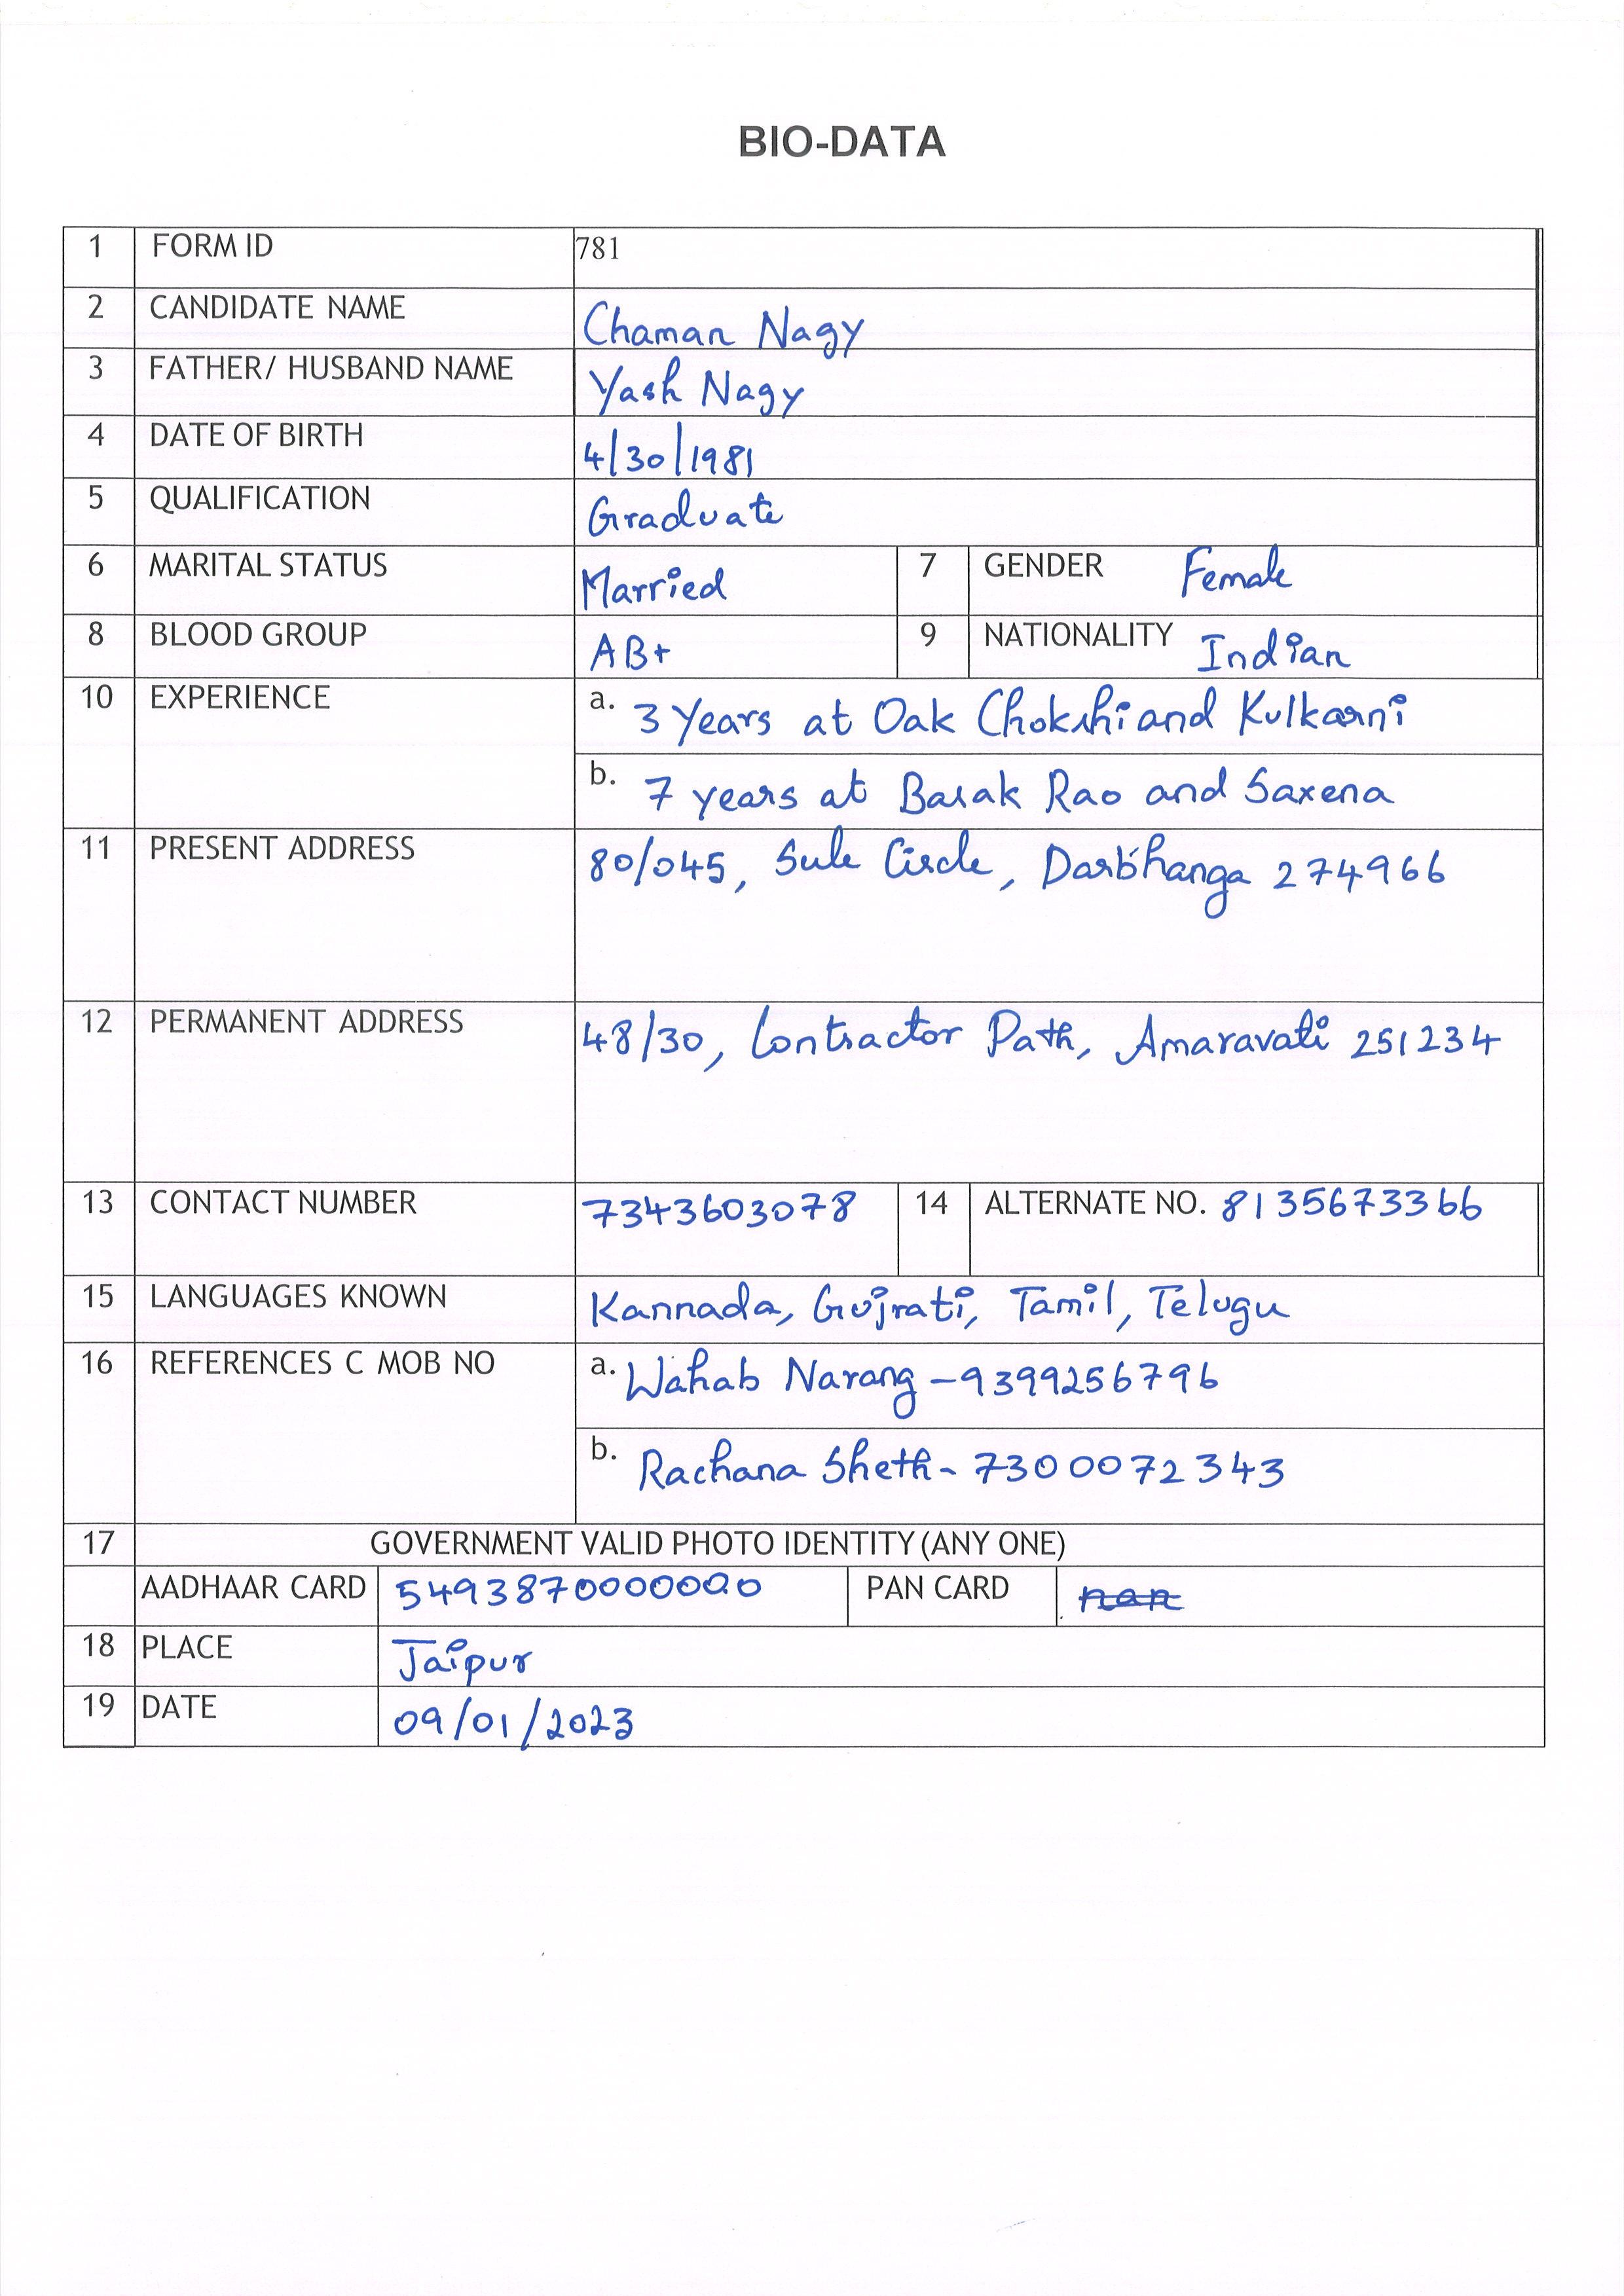 BIO-DATA
1 FORM ID 781
2 CANDIDATE NAME Chaman Nagy
3 FATHER/ HUSBAND NAME Yash Nagy
4 DATE OF BIRTH 4/30/1981
5 QUALIFICATION Graduate
6 MARITAL STATUS Married 7 GENDER Female
8 BLOOD GROUP AB+ 9 NATIONALITY Indian
10 EXPERIENCE a. 3 Years at Oak Chokshi and Kulkarni
b. 7 years at Barak Rao and Saxena
11 PRESENT ADDRESS 80/045, Sule Circle, Darbhanga 274966
12 PERMANENT ADDRESS 48/30, Contractor Path, Amaravati 251234
13 CONTACT NUMBER 7343603078 14 ALTERNATE NO. 8135673366
15 LANGUAGES KNOWN Kannada, Gujrati, Tamil, Telugu
16 REFERENCES C MOB NO a. Wahab Narang - 9399256796
b. Rachana Sheth - 7300072343
17 GOVERNMENT VALID PHOTO IDENTITY (ANY ONE)
AADHAAR CARD 549387000000 PAN CARD nan
18 PLACE Jaipur
19 DATE 09/01/2023